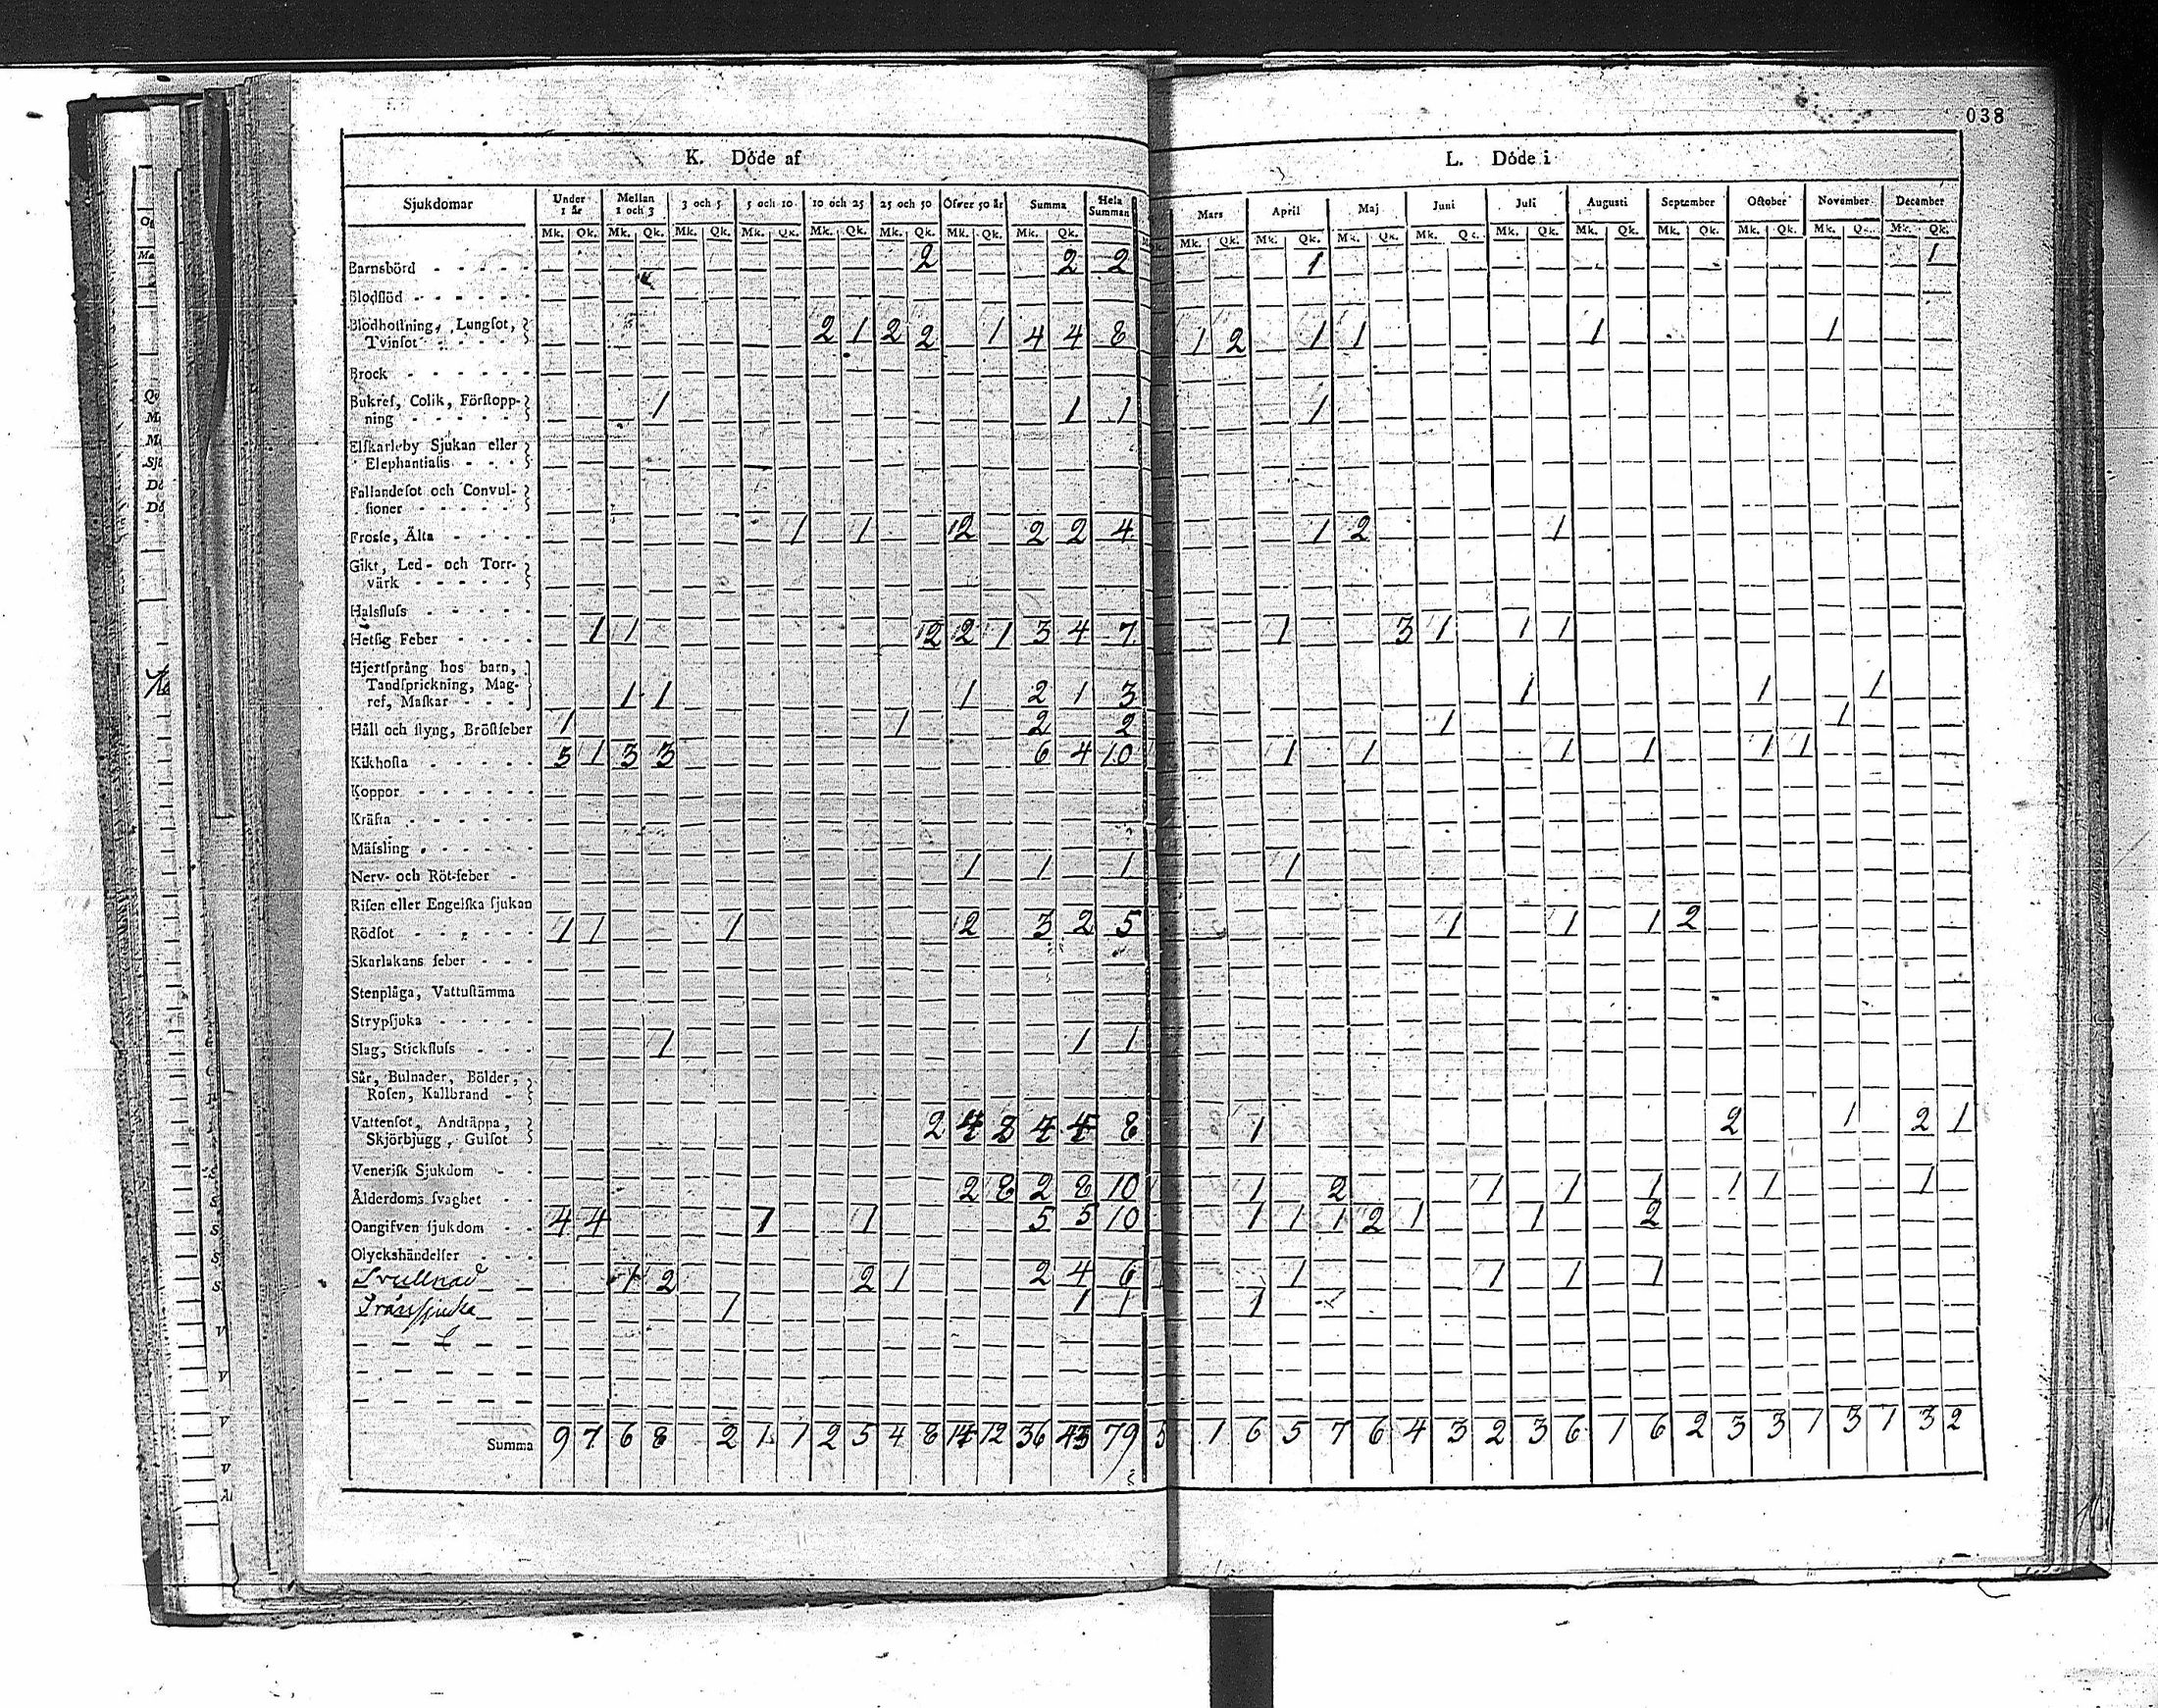 038
K. Döde af
L. Döde i
Sjukdomar Under 1 år Mellan 1 och 3 3 och 5 5 och 10 10 och 25 25 och 50 Öfver 50 år Summa Hela Summan
Mars April Maj Juni Juli Augusti September October November December
Mk. Qk. Mk. Qk. Mk. Qk. Mk. Qk. Mk. Qk. Mk. Qk. Mk. Qk. Mk. Qk.
Mk. Qk. Mk. Qk. Mk. Qk. Mk. Qk. Mk. Qk. Mk. Qk. Mk. Qk. Mk. Qk. Mk. Qk. Mk. Qk.
Barnsbörd 2 2 2 1 1
Blodflöd
Blodhostning, Lungsot,
Tvinsot 2 1 2 2 1 4 4 8 1 2 1 1 1 1
Brock
Bukref, Colik, Förstopp-
ning 1 1 1 1
Elfkarleby Sjukan eller
Elephantiasis
Fallandesot och Convul-
sioner
Frosse, Älta 1 1 2 2 2 4 1 2 1
Gikt, Led- och Torr-
värk
Halsfluss
Hetsig Feber 1 1 2 2 1 3 4 7 1 3 1 1 1
Hjertsprång hos barn,
Tandsprickning, Mag-
ref, Maskar 1 1 1 2 1 3 1 1 1
Håll och styng, Bröstfeber 1 1 2 2 1 1
Kikhosta 3 1 3 3 6 4 10 1 1 1 1 1 1
Koppor
Kräfta
Mässling
Nerv- och Röt-feber 1 1 1 1
Risen eller Engelska sjukan
Rödsot 1 1 1 2 3 2 5 1 1 1 2
Skarlakans feber
Stenplåga, Vattustämma
Strypsjuka
Slag, Stickfluss 1 1 1
Sår, Bulnader, Bölder,
Rosen, Kallbrand
Vattensot, Andtäppa,
Skjörbjugg, Gulsot 2 4 2 4 4 8 1 2 1 2 1
Venerisk Sjukdom
Ålderdoms svaghet 2 8 2 8 10 1 2 1 1 1 1 1 1
Oangifven sjukdom 4 4 1 1 5 5 10 1 1 1 2 1 1 2
Olyckshändelser
Svullnad 1 2 2 1 2 4 6 1 1 1 1
1 1 1 1
Summa 9 7 6 8 2 1 1 2 5 4 8 14 12 36 43 79 5 1 6 5 7 6 4 3 2 3 6 1 6 2 3 3 1 3 1 3 2